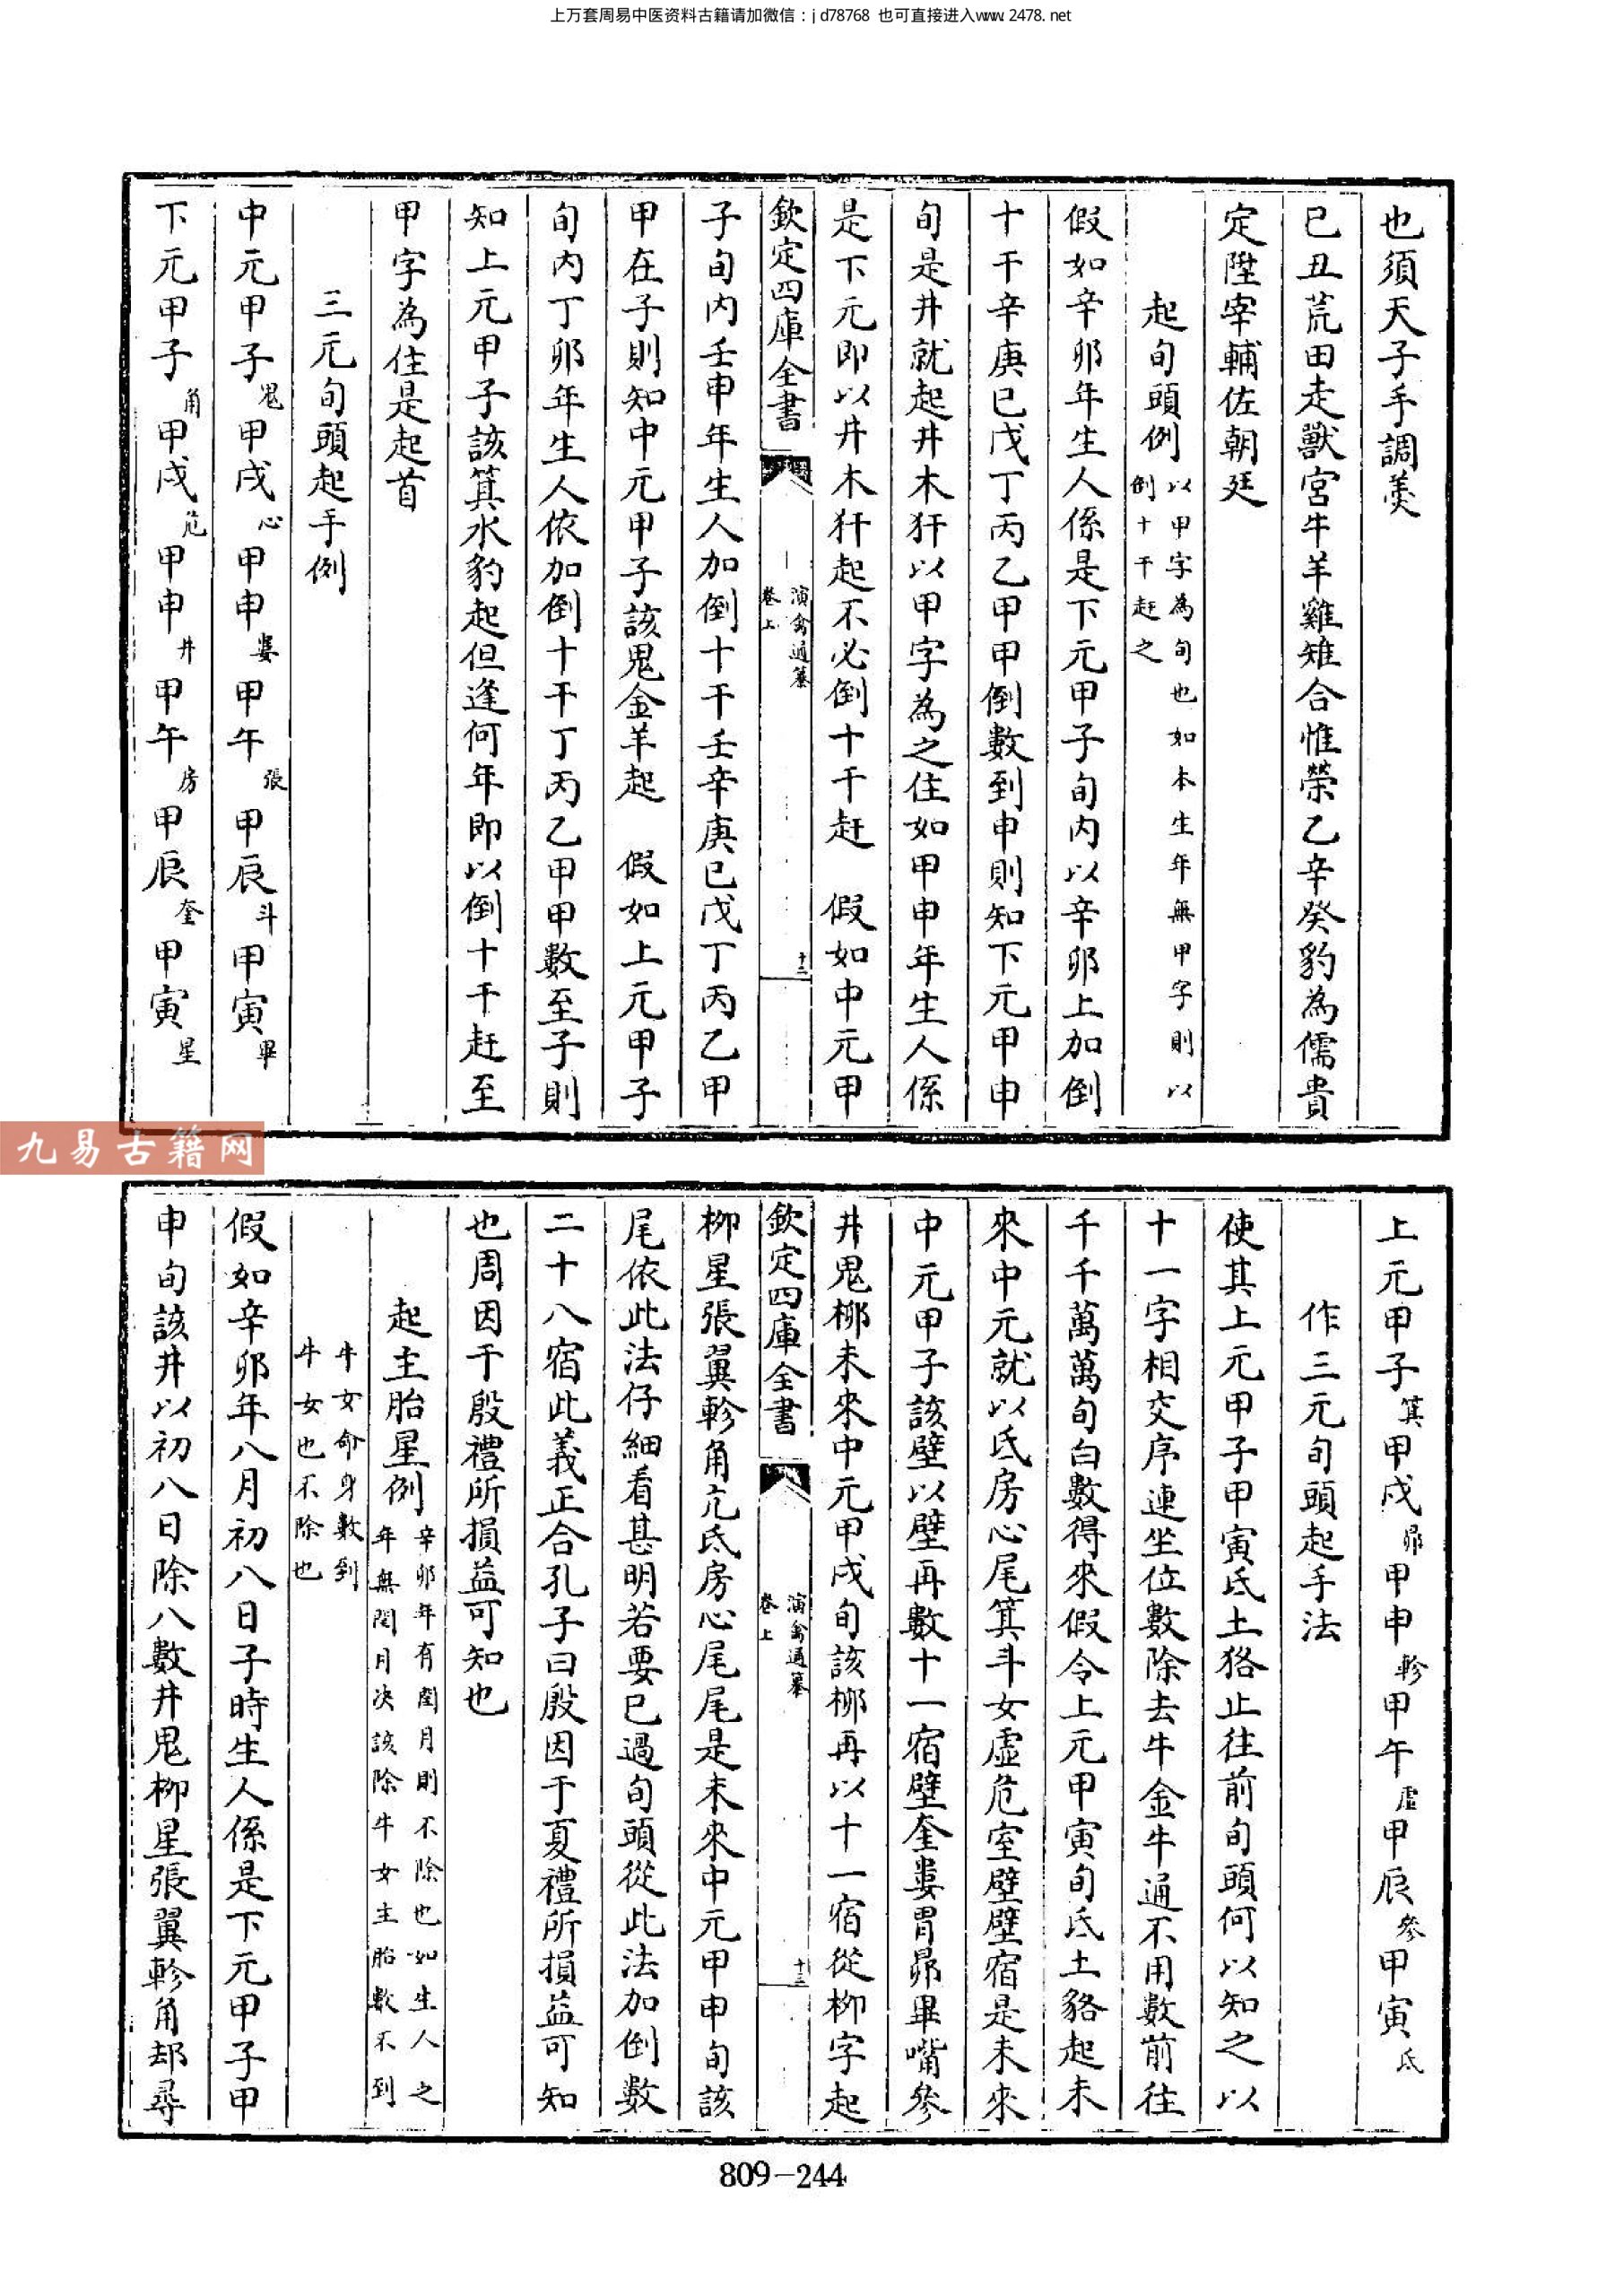 上万套周易中医资料古籍请加微信：jd78768 也可直接进入www.2478.net
也須天子手調羹
己丑荒田走獸宮牛羊雞雉合惟榮乙辛癸豹為儒貴
定陞宰輔佐朝廷
起旬頭例 以甲字為旬也如本生年無甲字則以
倒十干赶之
假如辛卯年生人係是下元甲子旬内以辛卯上加倒
十干辛庚已戊丁丙乙甲甲倒數到申則知下元甲申
旬是井就起井木犴以甲字為之住如甲申年生人係
是下元即以井木犴起不必倒十干赶 假如中元甲
欽定四庫全書
演禽通纂
卷上
十二
子旬内壬申年生人加倒十干壬辛庚已戊丁丙乙甲
甲在子則知中元甲子該鬼金羊起 假如上元甲子
旬内丁卯年生人依加倒十干丁丙乙甲甲數至子則
知上元甲子該箕水豹起但逢何年即以倒十干赶至
甲字為住是起首
三元旬頭起手例
中元甲子鬼甲戌心甲申婁甲午張甲辰斗甲寅畢
下元甲子角甲戌危甲申井甲午房甲辰奎甲寅星
九易古籍网
上元甲子箕甲戌昴甲申軫甲午虛甲辰參甲寅氐
作三元旬頭起手法
使其上元甲子甲寅氐土狢止往前旬頭何以知之以
十一字相交序連坐位數除去牛金牛通不用數前往
千千萬萬旬白數得來假令上元甲寅旬氐土貉起未
來中元就以氐房心尾箕斗女虛危室壁壁宿是未來
中元甲子該壁以壁再數十一宿壁奎婁胃昴畢嘴參
井鬼柳未來中元甲戌旬該柳再以十一宿從柳字起
欽定四庫全書
演禽通纂
卷上
十三
柳星張翼軫角亢氐房心尾尾是未來中元甲申旬該
尾依此法仔細看甚明若要已過旬頭從此法加倒數
二十八宿此義正合孔子曰殷因于夏禮所損益可知
也周因于殷禮所損益可知也
起主胎星例 辛卯年有閏月則不除也如生人之
年無閏月决該除牛女主胎數不到
牛女命身數到
牛女也不除也
假如辛卯年八月初八日子時生人係是下元甲子甲
申旬該井以初八日除八數井鬼柳星張翼軫角却尋
809-244